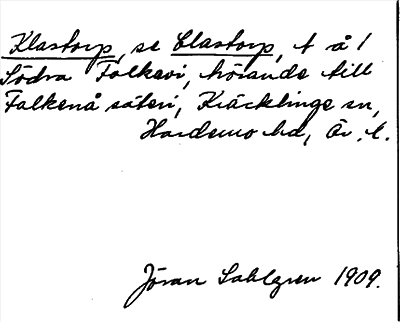 Klastorp, se Clastorp, t å /
Södra Folkavi, hörande till
Falkenå säteri, Kräcklinge sn,
Hardemo hd, Ör. l.
Jöran Sahlgren 1909.